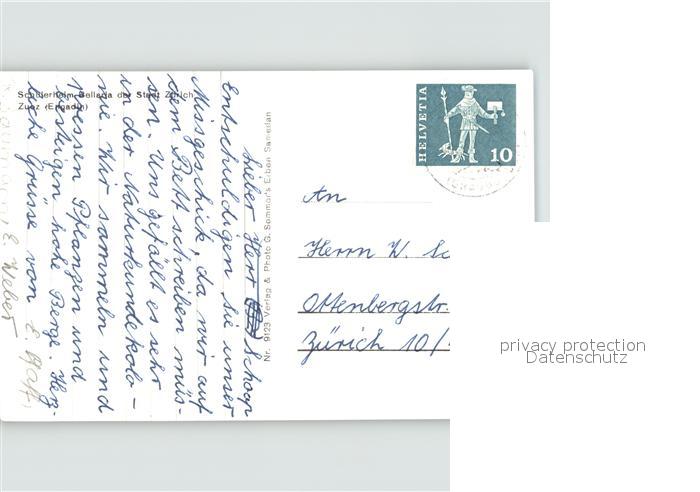 Schülerheim Bellaria der Stadt Zürich
Zuoz (Engadin)
Lieber Herr Schoop
Entschuldigen Sie unser
Missgeschick, da wir auf
dem Bett schreiben müs-
sen. Uns gefällt es sehr
in der Naturkundekolo-
nie. Wir sammeln und
pressen Pflanzen und
besteigen hohe Berge. Herz-
liche Grüsse von E.
E. Weber
Nr. 9123 Verlag & Photo G. Sommer's Erben Samedan
HELVETIA
10
An
Herrn W. Sc
Ottenbergstr.
Zürich 10/
privacy protection
Datenschutz